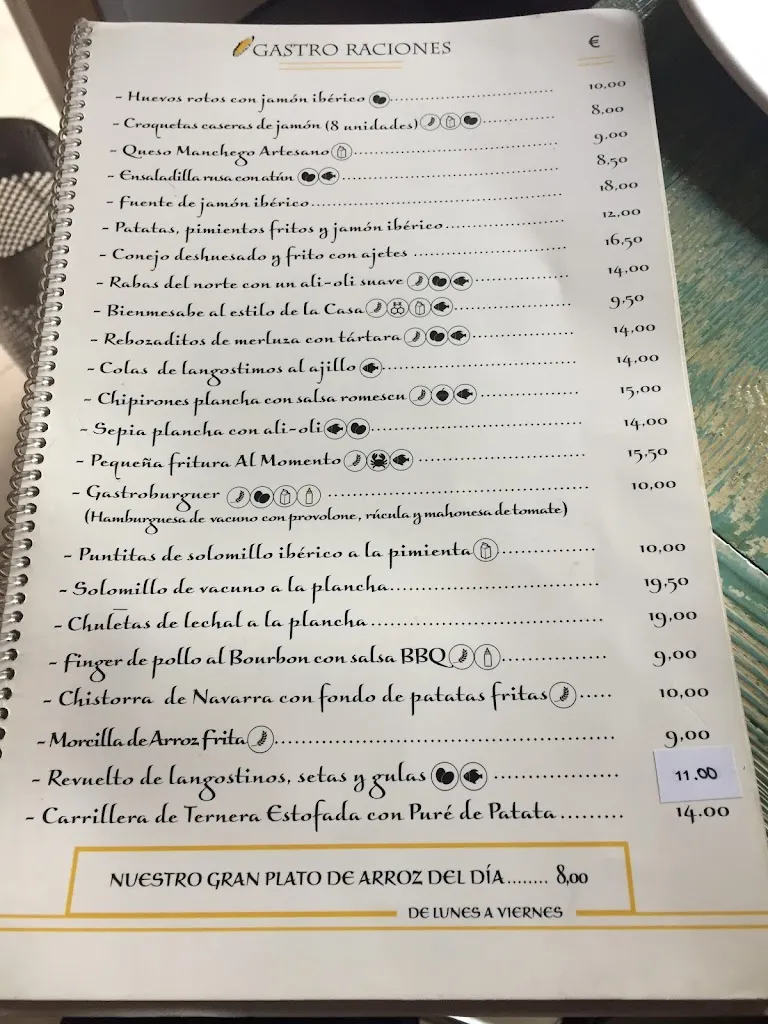 GASTRO RACIONES €
- Huevos rotos con jamón ibérico 10,00
- Croquetas caseras de jamón (8 unidades) 8,00
- Queso Manchego Artesano 9,00
- Ensaladilla rusa con atún 8,50
- Fuente de jamón ibérico 18,00
- Patatas, pimientos fritos y jamón ibérico 12,00
- Conejo deshuesado y frito con ajetes 16,50
- Rabas del norte con un ali-oli suave 14,00
- Bienmesabe al estilo de la Casa 9,50
- Rebozaditos de merluza con tártara 14,00
- Colas de langostimos al ajillo 14,00
- Chipirones plancha con salsa romescu 15,00
- Sepia plancha con ali-oli 14,00
- Pequeña fritura Al Momento 15,50
- Gastroburguer 10,00
(Hamburguesa de vacuno con provolone, rúcula y mahonesa de tomate)
- Puntitas de solomillo ibérico a la pimienta 10,00
- Solomillo de vacuno a la plancha 19,50
- Chuletas de lechal a la plancha 19,00
- Finger de pollo al Bourbon con salsa BBQ 9,00
- Chistorra de Navarra con fondo de patatas fritas 10,00
- Morcilla de Arroz Frita 9,00
- Revuelto de langostinos, setas y gulas 11.00
- Carrillera de Ternera Estofada con Puré de Patata 14.00
NUESTRO GRAN PLATO DE ARROZ DEL DÍA 8,00
DE LUNES A VIERNES